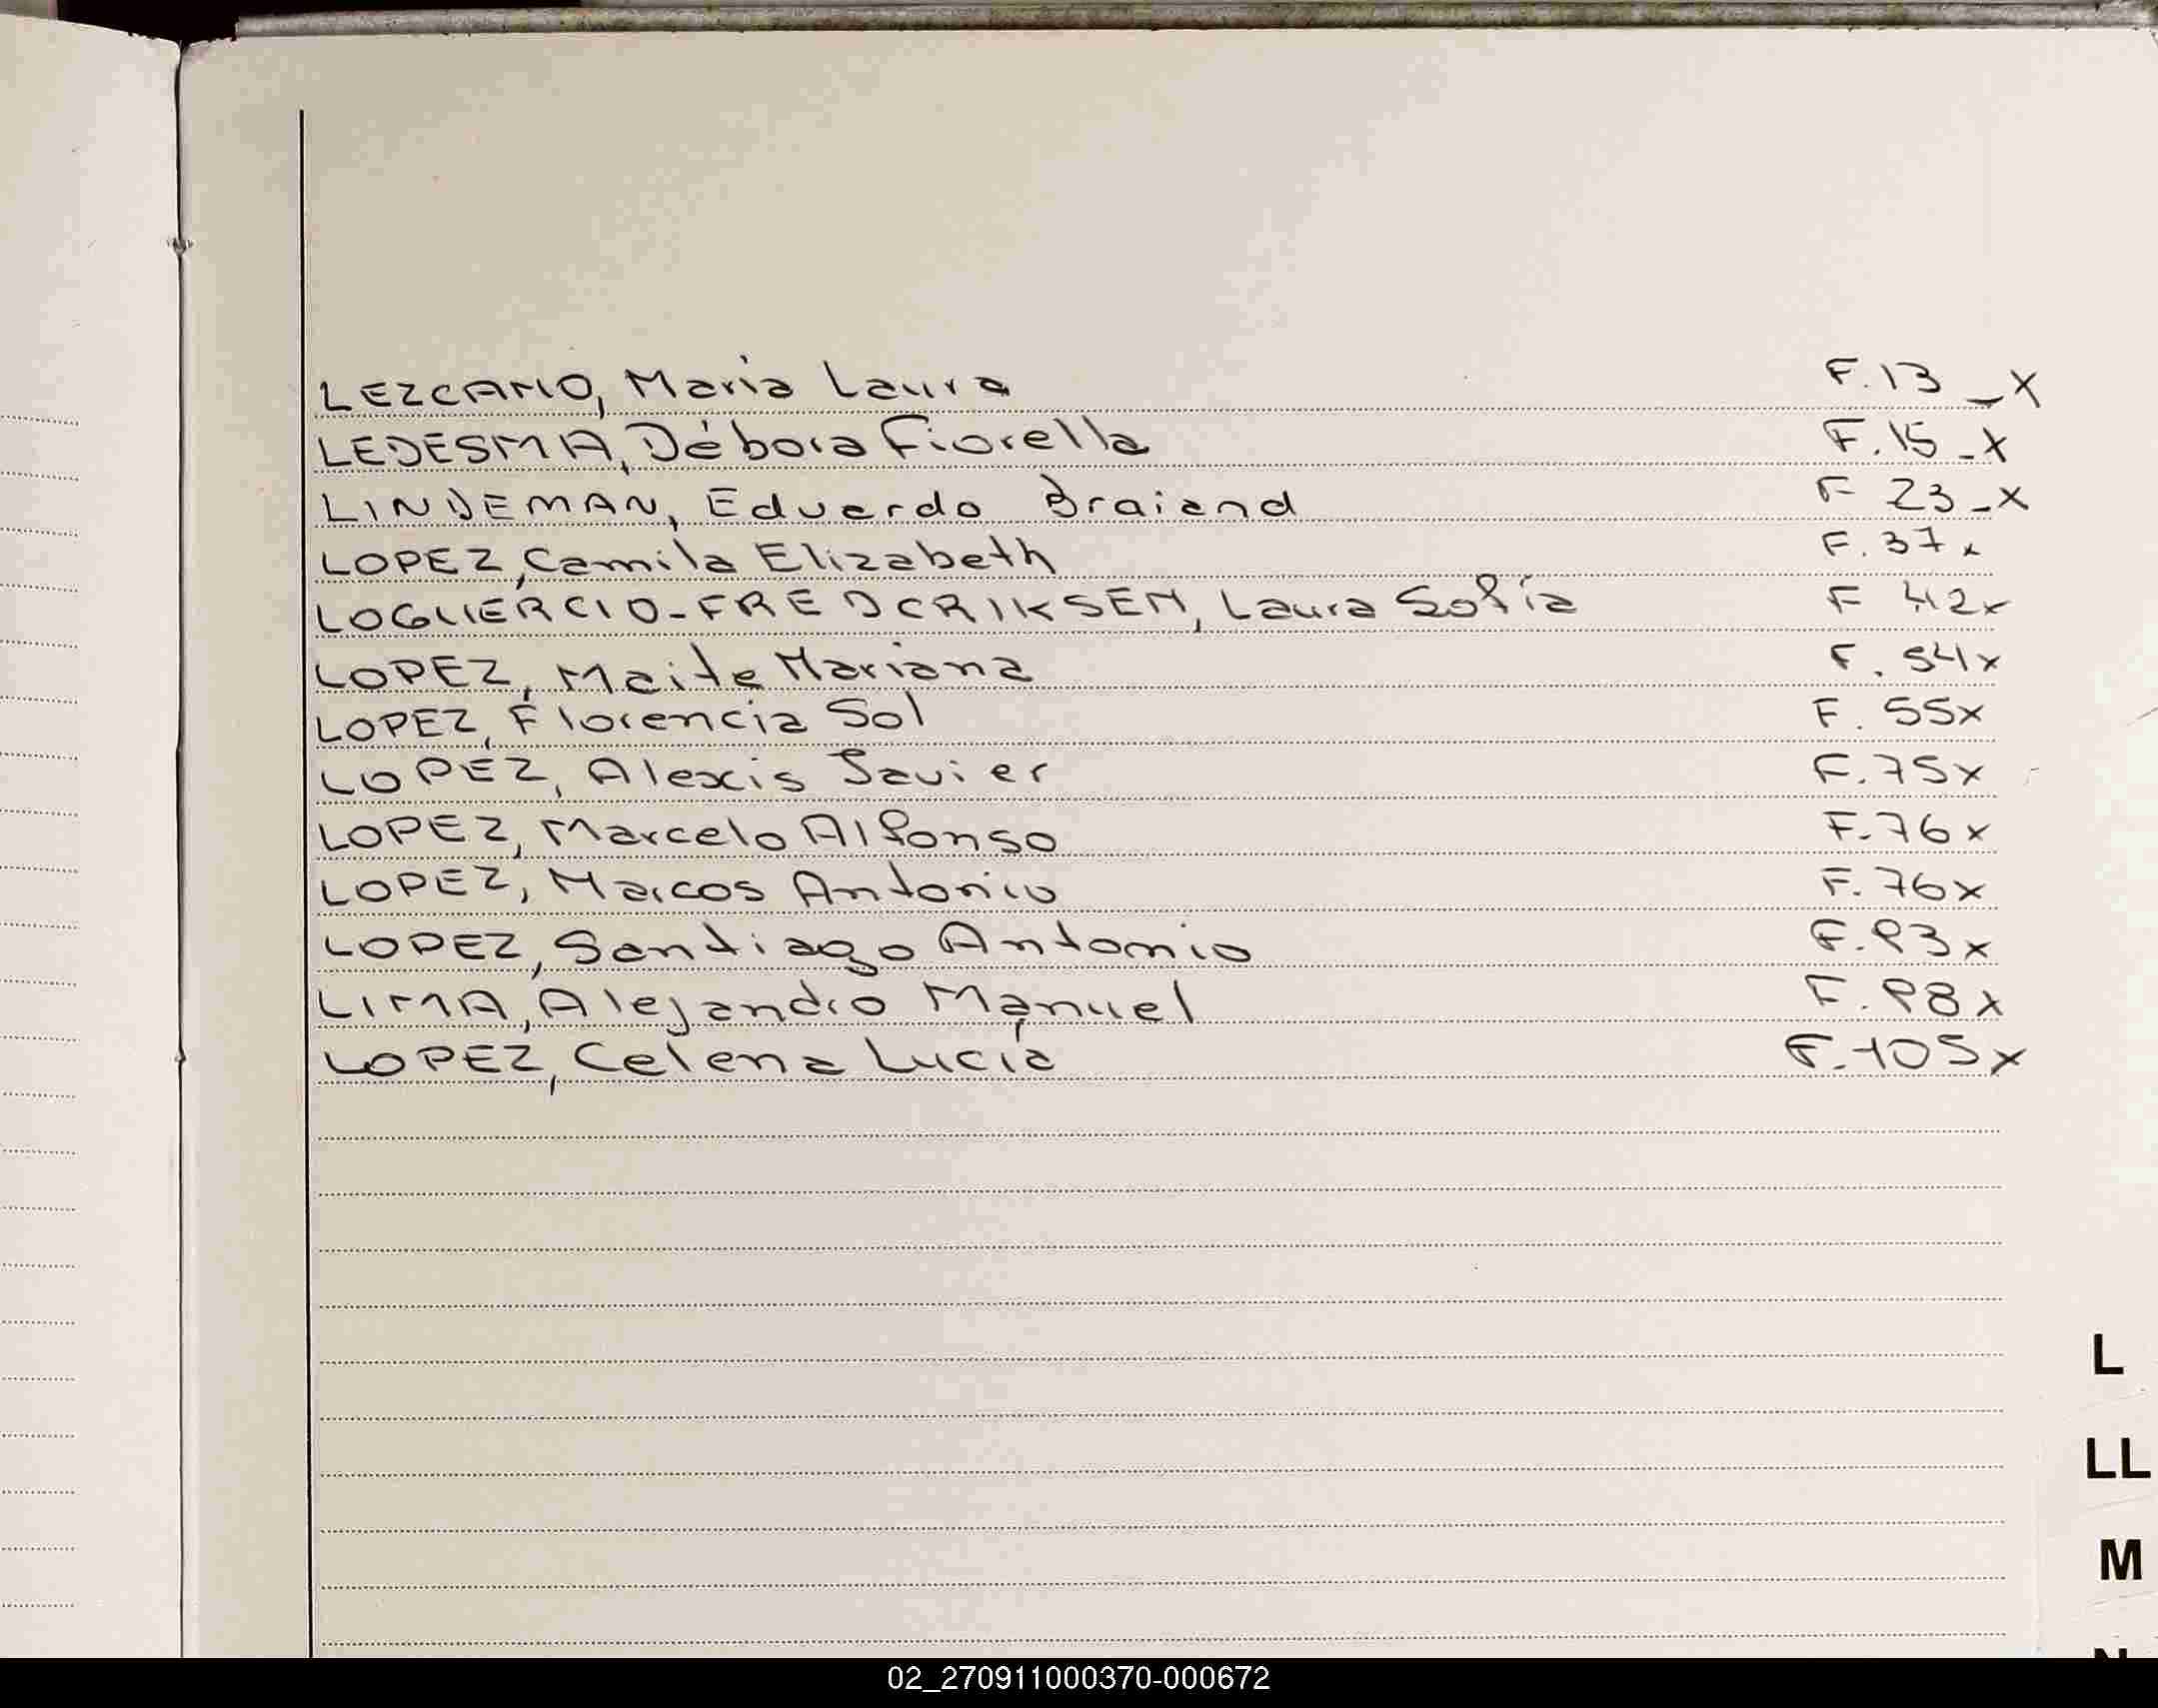 LEZCANO, Maria Laura F.13 _x
LEDESMA, Débora Fiorella F.15 _x
LINDEMAN, Eduardo Braiand F 23 _x
LOPEZ, Camila Elizabeth F.37 x
LOGUERCIO-FREDERIKSEN, Laura Sofía F 42x
LOPEZ, Maite Mariana F.54x
LOPEZ, Florencia Sol F.55x
LOPEZ, Alexis Javier F.75x
LOPEZ, Marcelo Alfonso F.76x
LOPEZ, Marcos Antonio F.76x
LOPEZ, Santiago Antonio F.93x
LIMA, Alejandro Manuel F.98x
LOPEZ, Celena Lucía F.105x
L
LL
M
02_270911000370-000672